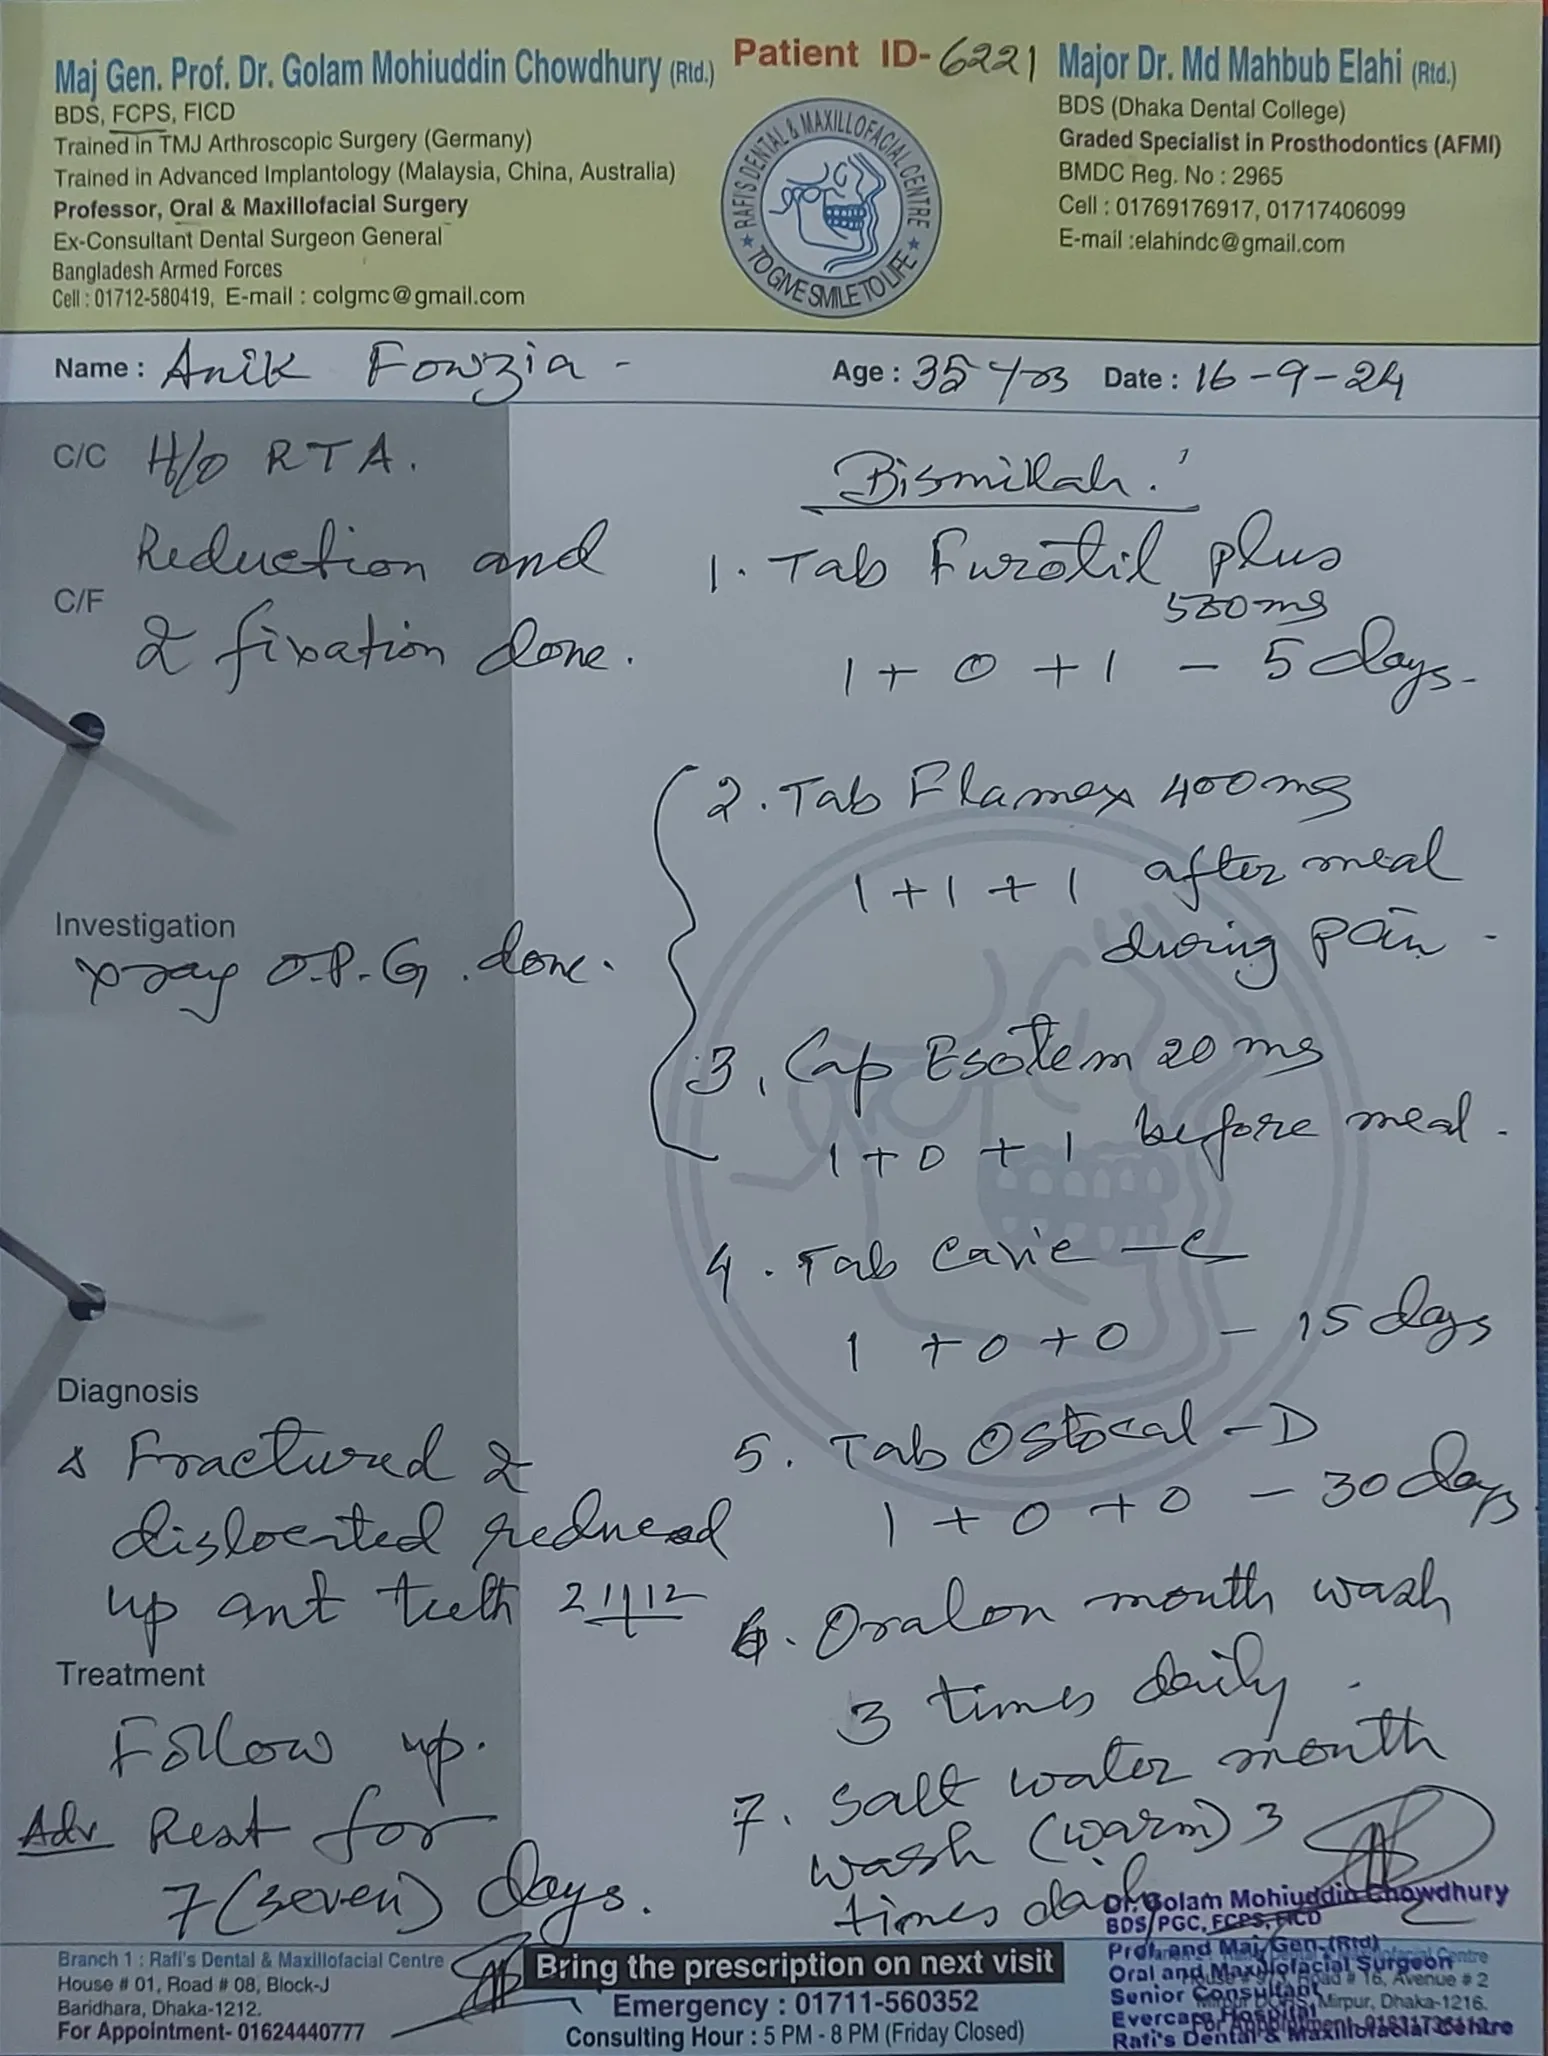 Patient ID- 6221
Maj Gen. Prof. Dr. Golam Mohiuddin Chowdhury (Rtd.)
BDS, FCPS, FICD
Trained in TMJ Arthroscopic Surgery (Germany)
Trained in Advanced Implantology (Malaysia, China, Australia)
Professor, Oral & Maxillofacial Surgery
Ex-Consultant Dental Surgeon General
Bangladesh Armed Forces
Cell : 01712-580419, E-mail : colgmc@gmail.com
RAFI'S DENTAL & MAXILLOFACIAL CENTRE
TO GIVE SMILE TO LIFE
Major Dr. Md Mahbub Elahi (Rtd.)
BDS (Dhaka Dental College)
Graded Specialist in Prosthodontics (AFMI)
BMDC Reg. No : 2965
Cell : 01769176917, 01717406099
E-mail :elahindc@gmail.com
Name : Anik Fowzia -
Age : 35 Yrs Date : 16-9-24
C/C H/O RTA.
Reduction and
C/F
& fixation done.
Investigation
xray O.P.G. done.
Diagnosis
Fractured &
dislocated reduced
up ant teeth 21|12
Treatment
Follow up.
Adv Rest for
7 (seven) days.
Bismillah.
1. Tab Furotil plus
500mg
1 + 0 + 1 - 5 days.
2. Tab Flamex 400mg
1 + 1 + 1 after meal
during pain -
3. Cap Esotem 20 mg
1 + 0 + 1 before meal.
4. Tab Cavic - C
1 + 0 + 0 - 15 days
5. Tab Ostocal - D
1 + 0 + 0 - 30 days
6. Oralon mouth wash
3 times daily.
7. Salt water mouth
wash (warm) 3
times daily
Dr. Golam Mohiuddin Chowdhury
BDS, PGC, FCPS, FICD
Prof. and Maj. Gen. (Rtd)
Oral and Maxillofacial Surgeon
Senior Consultant
Evercare Hospital
Rafi's Dental & Maxillofacial Centre
Branch 1 : Rafi's Dental & Maxillofacial Centre
House # 01, Road # 08, Block-J
Baridhara, Dhaka-1212.
For Appointment- 01624440777
Bring the prescription on next visit
Emergency : 01711-560352
Consulting Hour : 5 PM - 8 PM (Friday Closed)
Road # 16, Avenue # 2
Mirpur DOHS, Mirpur, Dhaka-1216.